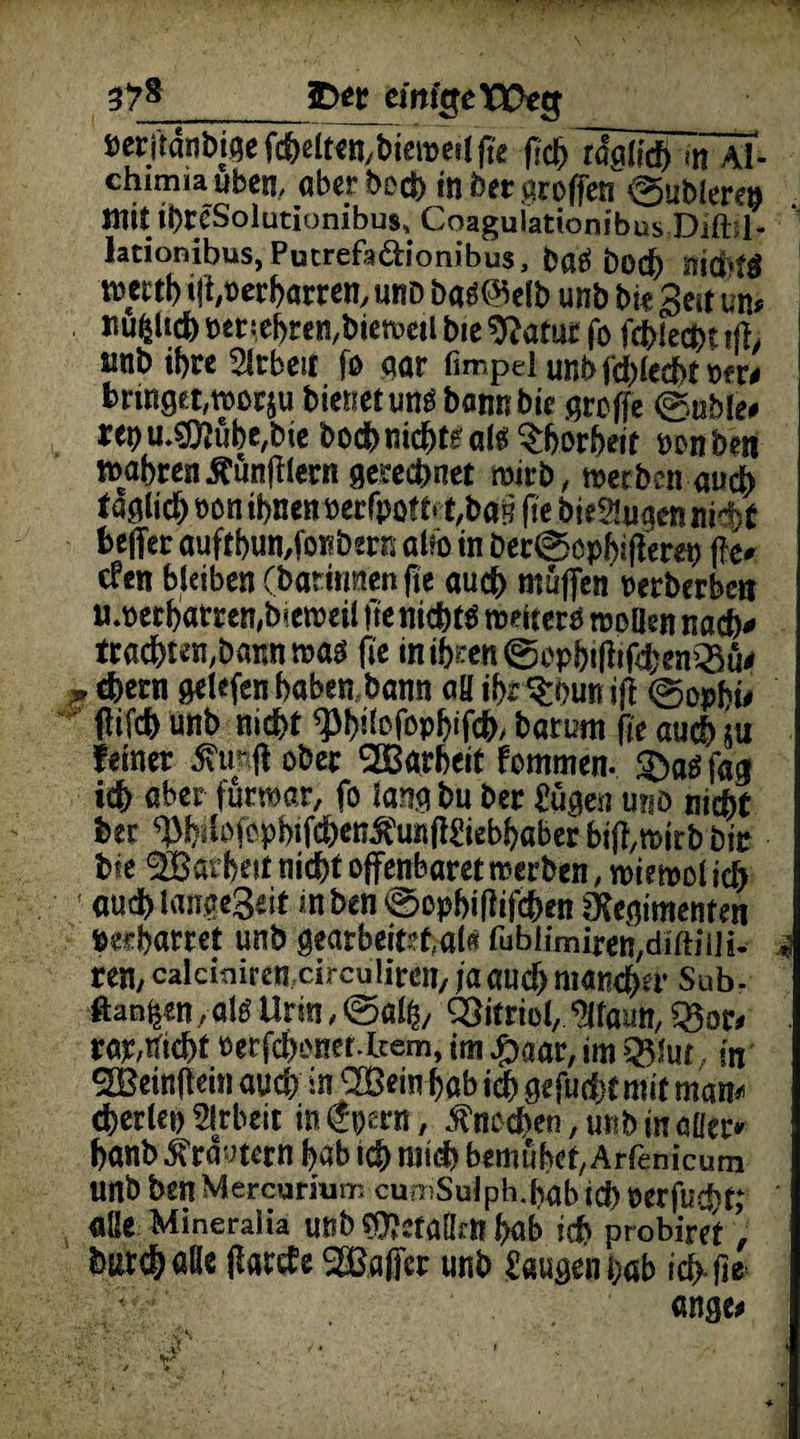 378 Der einige Weg
verständige schelten, dieweil sie sich täglich in Al-
chimia üben, aber doch in der grossen Sudlerey
mit ihrē Solutionibus, Coagulationibus Distil-
lationibus, Putrefactionibus, das doch nichts
werth ist, verharren, und das Geld und die Zeit un-
nützlich verzehren, dieweil die Natur so schlecht ist,
und ihre Arbeit so gar simpel und schlecht ver-
bringet, worzu dienet uns dann die grosse Sudle-
rey u. Mühe, die doch nichts als Thorheit von den
wahren Künstlern gerechnet wird, werden auch
täglich von ihnen verspottet, daß sie die Augen nicht
besser aufthun, sondern also in der Sophisterey ste-
cken bleiben (darinnen sie auch müssen verderben
u. verharren, dieweil sie nichts weiters wollen nach-
trachten, dann was sie in ihren Sophistischen Bü-
chern gelesen haben, dann all ihr Thun ist Sophi-
stisch und nicht Philosophisch, darum sie auch zu
keiner Kunst oder Warheit kommen. Das sag
ich aber fürwar, so lang du der Lügen und nicht
der Philosophischen Kunst Liebhaber bist, wird dir
die Warheit nicht offenbaret werden, wiewol ich
auch lange Zeit in den Sophistischen Regimenten
verharret und gearbeitet, als sublimiren, distilli-
ren, calciniren, circuliren, ja auch mancher Sub-
stantzen, als Urin, Saltz, Vitriol, Alaun, Bor-
rax, nicht verschonet. Item, im Haar, im Blut, in
Weinstein auch in Wein hab ich gesucht mit man-
cherley Arbeit in Eyern, Knochen, und in aller-
hand Kräutern hab ich mich bemühet, Arsenicum
und den Mercurium cum Sulph. hab ich versucht;
alle Mineralia und Metallen hab ich probiret,
durch alle starcke Wasser und Laugen hab ich sie
ange-